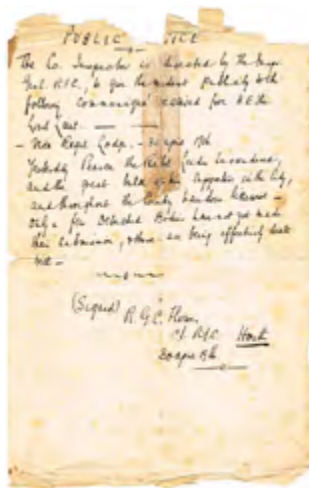 PUBLIC NOTICE
The Co. Inspector is directed by the
Genl. R.I.C., to give the widest publicity to the
following communiqué received from H.E. the
Lord Lieut.
- Vice Regal Lodge, - 30 April 1916
Yesterday Pearse the Rebel Leader surrendered,
and the great bulk of his supporters in the City,
and throughout the County have done likewise -
Only a few Detached Bodies have not yet made
their submission, others are being effectively dealt
with -
(Signed) R. G. C.
C.I. R.I.C.
30 April 1916